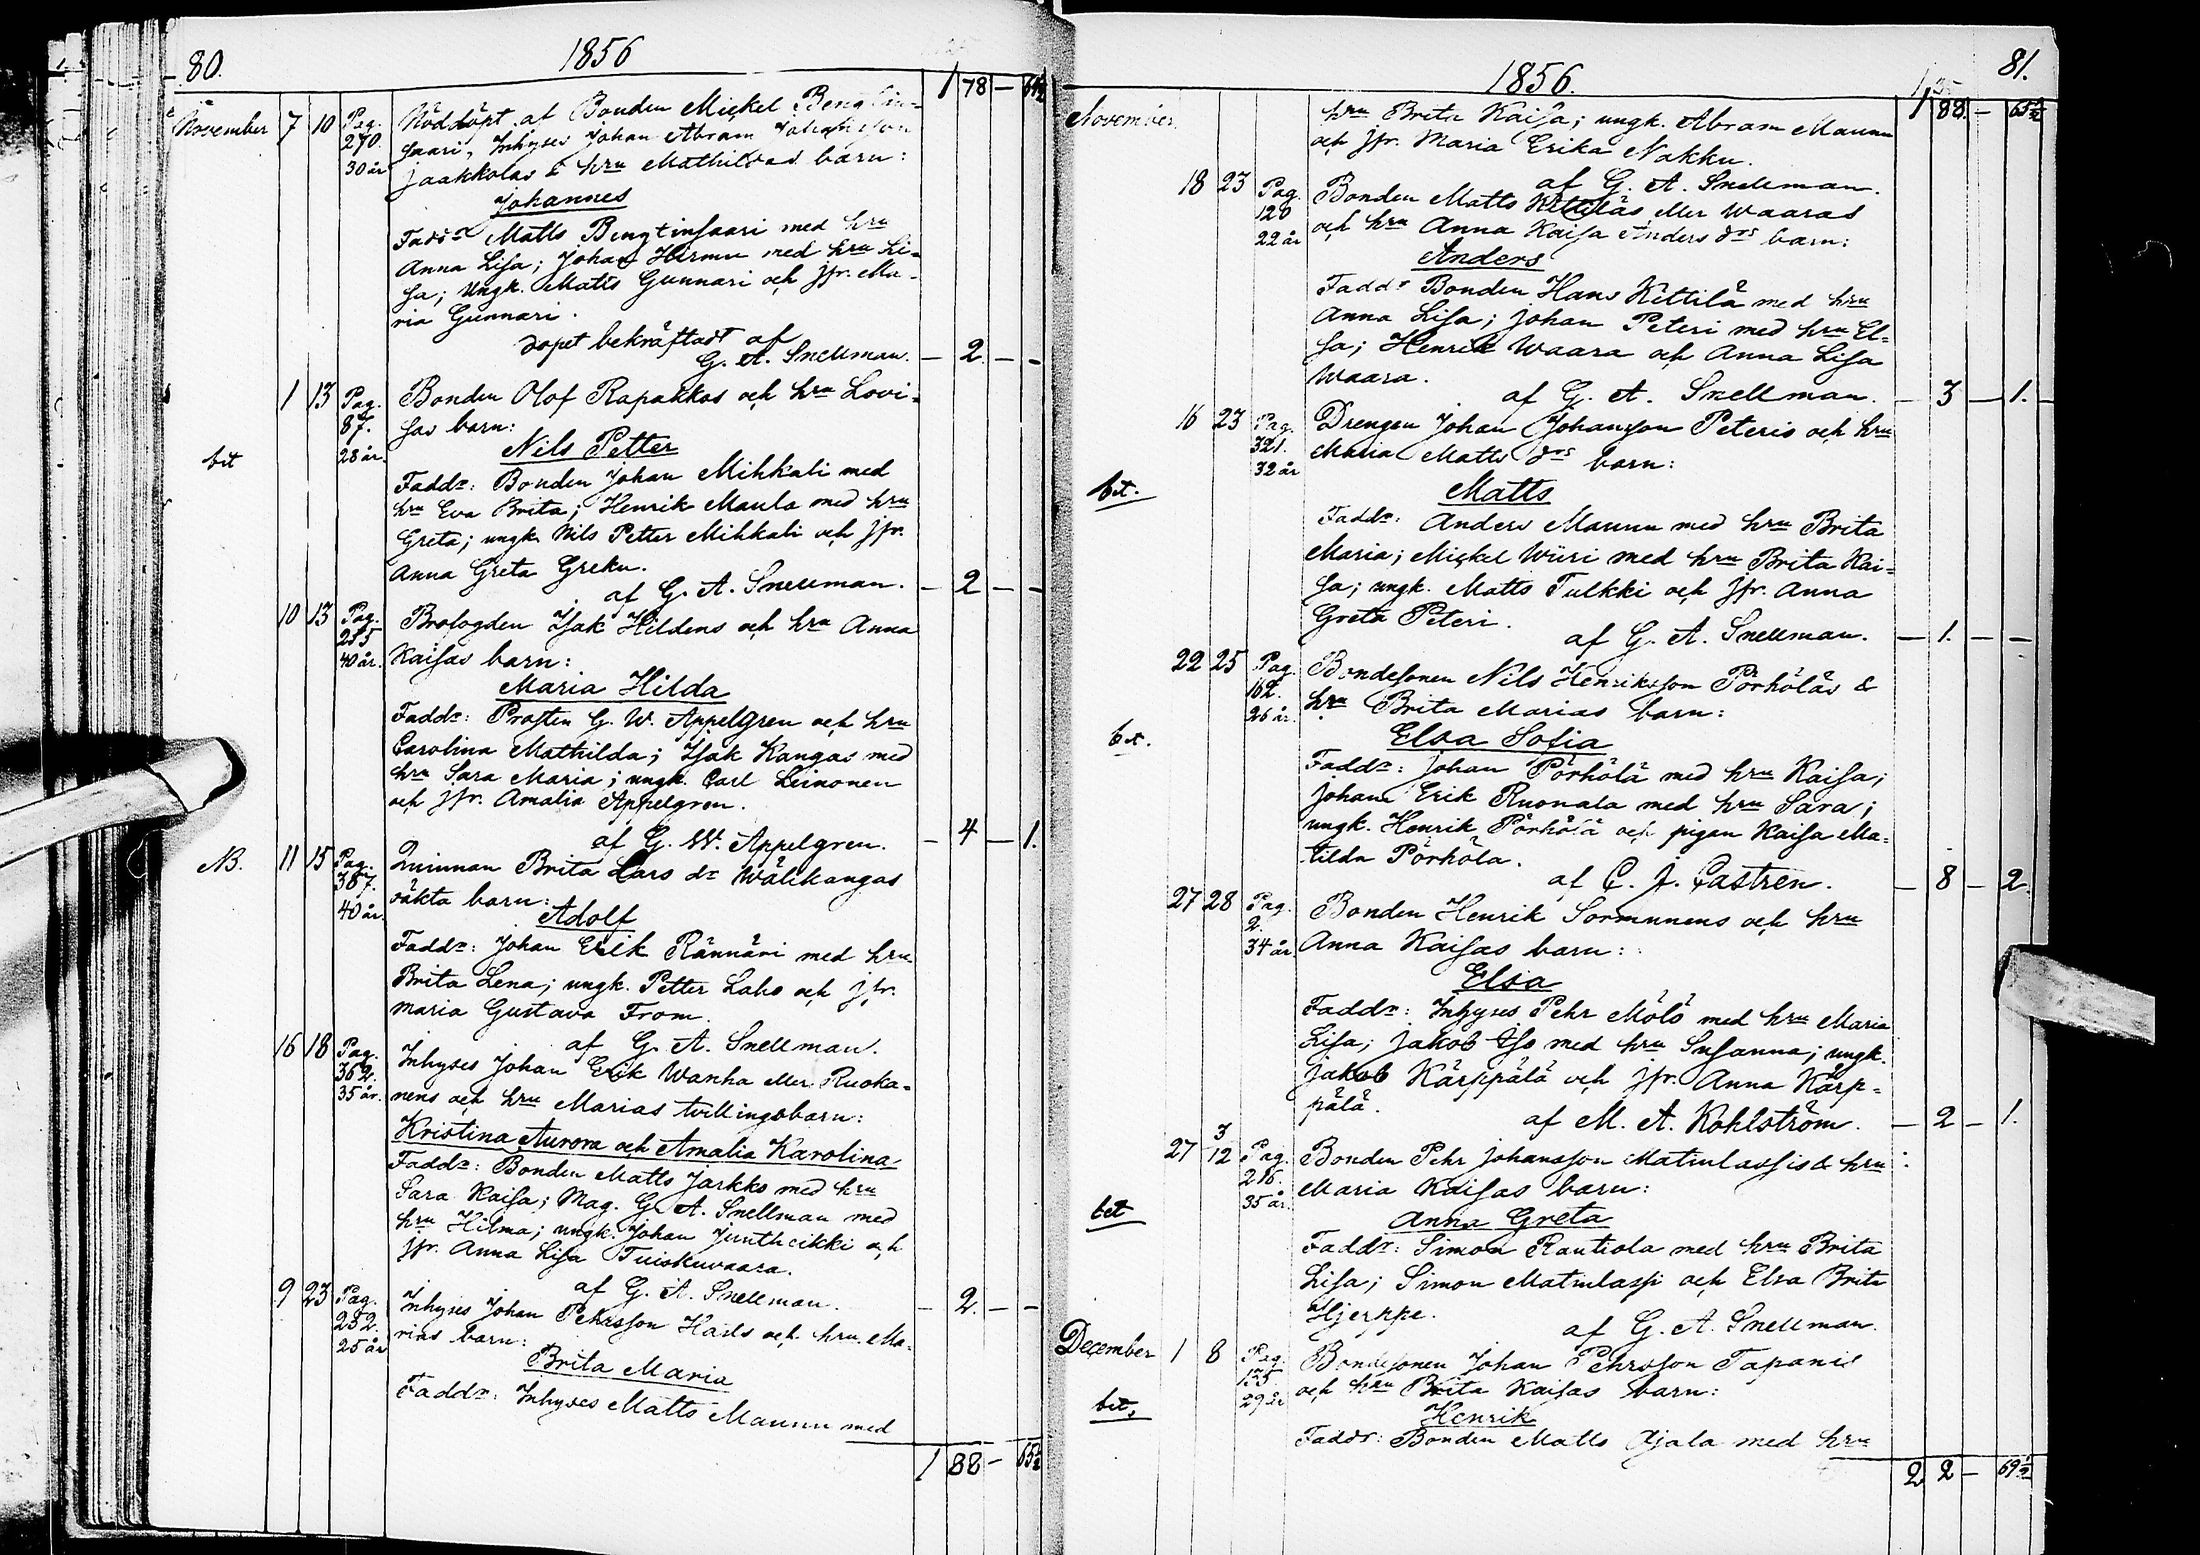 80.
1856
1 78 — 64½
November 7 10 Pag. 270. 30 år Nöddöpt af Bonden Mickel Bengtin-
saari, Inhyses Johan Abram Johansson
Jaakkolas & hru Mathildas barn:
Johannes
Faddr Matts Bengtinsaari med hru
Anna Lisa; Johan Hirmu med hru Li-
sa; Ungk. Matts Gunnari och Jfr. Ma-
ria Gunnari.
dopet bekräftadt af
G. A. Snellman. — 2. — –
1 13 Pag. 87. 28 år. Bonden Olof Rapakkos och hru Lovi-
sas barn:
bet
Nils Petter
Faddr: Bonden Johan Mihkali med
hru Eva Brita; Henrik Maula med hru
Greta; ungk. Nils Petter Mihkali och Jfr.
Anna Greta Greku.
af G. A. Snellman. — 2 — –
10 13 Pag. 255 40 år. Brofogden Isak Hildens och hru Anna
Kaisas barn:
Maria Hilda
Faddr: Prosten G. W. Appelgren och hru
Carolina Mathilda; Isak Kangas med
hru Sara Maria; ungk. Carl Leinonen
och Jfr. Amalia Appelgren.
af G. W. Appelgren. — 4 — 1.
NB. 11 15 Pag. 387. 40 år. Quinnan Brita Lars dr Wälikangas
oäkta barn:
Adolf
Faddr: Johan Erik Rännäri med hru
Brita Lena; ungk. Petter Laho och jfr.
Maria Gustava From.
af G. A. Snellman.
16 18 Pag. 362. 35 år. Inhyses Johan Erik Wanha eller Ruoka-
nens och hru Marias tvillingsbarn:
Kristina Aurora och Amalia Karolina
Faddr: Bonden Matts Jarkko med hru
Sara Kaisa; Mag. G. A. Snellman med
hru Hilma; ungk. Johan Juntheikki och
jfr. Anna Lisa Tuiskuvaara.
af G. A. Snellman. — 2. — –
9 23 Pag. 232. 25 år Inhyses Johan Pehrsson Hasts och hru Ma-
rias barn:
Brita Maria
Faddr: Inhyses Matts Maunu med
1 88 — 65½
81.
1856.
1 88. — 65½
November. hru Brita Kaisa; ungk. Abram Maunu
och jfr. Maria Erika Nakku.
af G. A. Snellman.
18 23 Pag. 120 22 år Bonden Matts Kittiläs eller Waaras
och hru Anna Kaisa Anders drs barn:
Anders
Faddr Bonden Hans Kittilä med hru
Anna Lisa; Johan Peteri med hru El-
sa; Henrik Waara och Anna Lisa
Waara.
af G. A. Snellman. — 3 — 1.
16 23 Pag. 321. 32 år Drengen Johan Johansson Peteris och hru
Maria Matts drs barn:
bet.
Matts
Faddr: Anders Maunu med hru Brita
Maria; Mickel Wiiri med hru Brita Kai-
sa; ungk. Matts Tulkki och jfr. Anna
Greta Peteri.
af G. A. Snellman. — 1. — –
22 25 Pag. 162. 26 år. Bondesonen Nils Henriksson Pörhöläs &
hru Brita Marias barn:
bet.
Elsa Sofia
Faddr: Johan Pörhölä med hru Kaisa;
Johan Erik Ruonala med hru Sara;
ungk. Henrik Pörhölä och pigan Kaisa Ma-
tilda Pörhöla.
af C. J. Castren. — 8 — 2.
27 28 Pag. 2. 34 år Bonden Henrik Sormunens och hru
Anna Kaisas barn:
Elsa
Faddr: Inhyses Pehr Mölö med hru Maria
Lisa; Jakob Iso med hru Susanna; ungk.
Jakob Kärppälä och jfr. Anna Kärp-
pälä.
af M. A. Kohlström. — 2 — 1.
27 3/12 Pag. 216. 35 år. Bonden Pehr Johansson Matinlassis & hru
Maria Kaisas barn:
bet
Anna Greta
Faddr: Simon Rautiola med hru Brita
Lisa; Simon Matinlassi och Elsa Brita
Hjerppe.
af G. A. Snellman.
December 1 8 Pag. 135. 29 år Bondesonen Johan Pehrsson Tapanis
och hru Brita Kaisas barn:
bet.
Henrik
Faddr: Bonden Matts Ajala med hru
2 2 — 69½